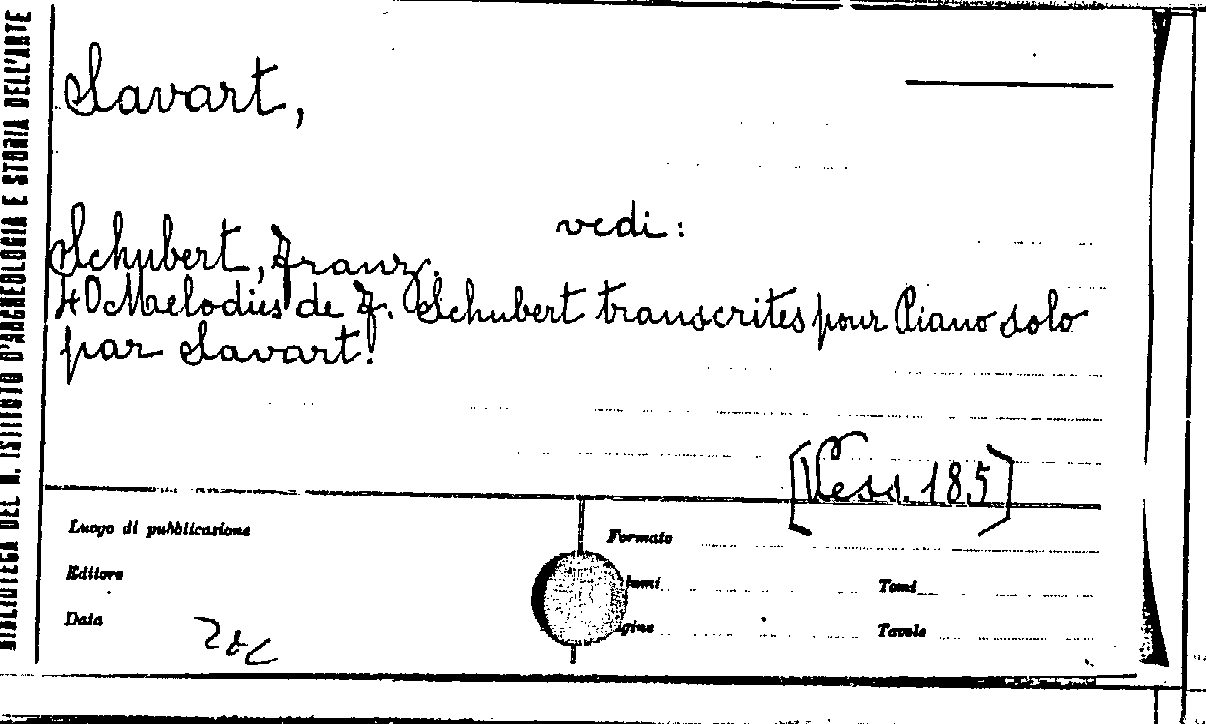 BIBLIOTECA DEL R. ISTITUTO D'ARCHEOLOGIA E STORIA DELL'ARTE
Savart,
vedi:
Schubert, Franz.
40 Melodies de F. Schubert transcrites pour Piano solo
par Savart.
[Vess. 185]
Luogo di pubblicazione
Formato
Editore
lumi
Tomi
Data
gine
Tavole